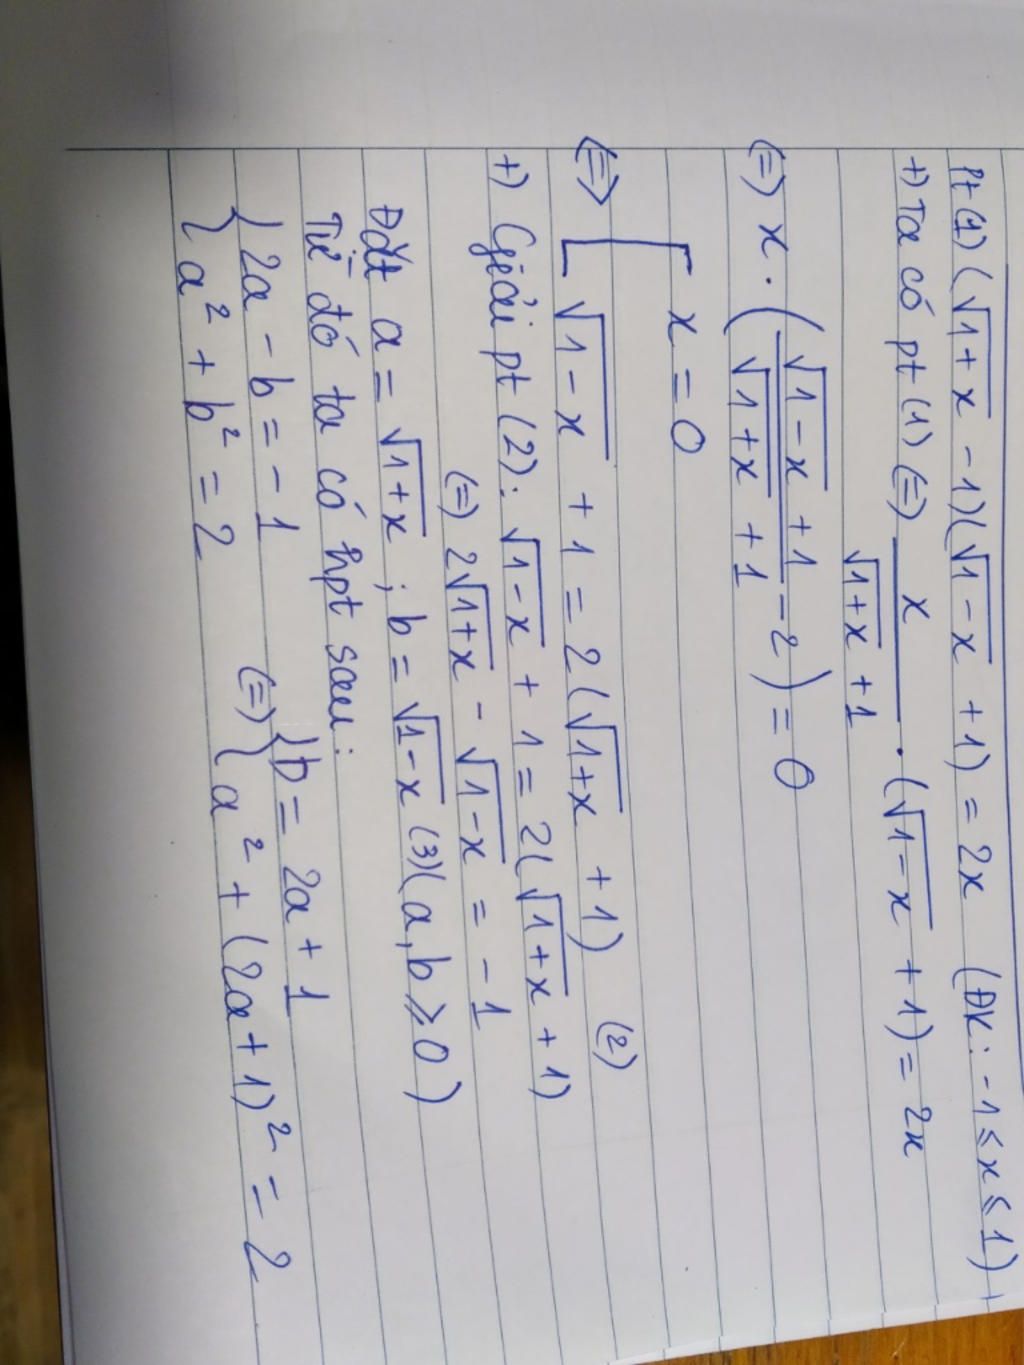 Pt (1) (√1+x - 1)(√1-x + 1) = 2x (ĐK: -1 ≤ x ≤ 1)
+) Ta có pt (1) (=) x/(√1+x + 1) . (√1-x + 1) = 2x
(=) x . ((√1-x + 1)/(√1+x + 1) - 2) = 0
⇔ [ x = 0
√1-x + 1 = 2(√1+x + 1) (2)
+) Giải pt (2): √1-x + 1 = 2(√1+x + 1)
(=) 2√1+x - √1-x = -1
Đặt a = √1+x ; b = √1-x (3) (a, b ≥ 0)
Từ đó ta có hpt sau:
{ 2a - b = -1 (=) { b = 2a + 1
a² + b² = 2 a² + (2a+1)² = 2